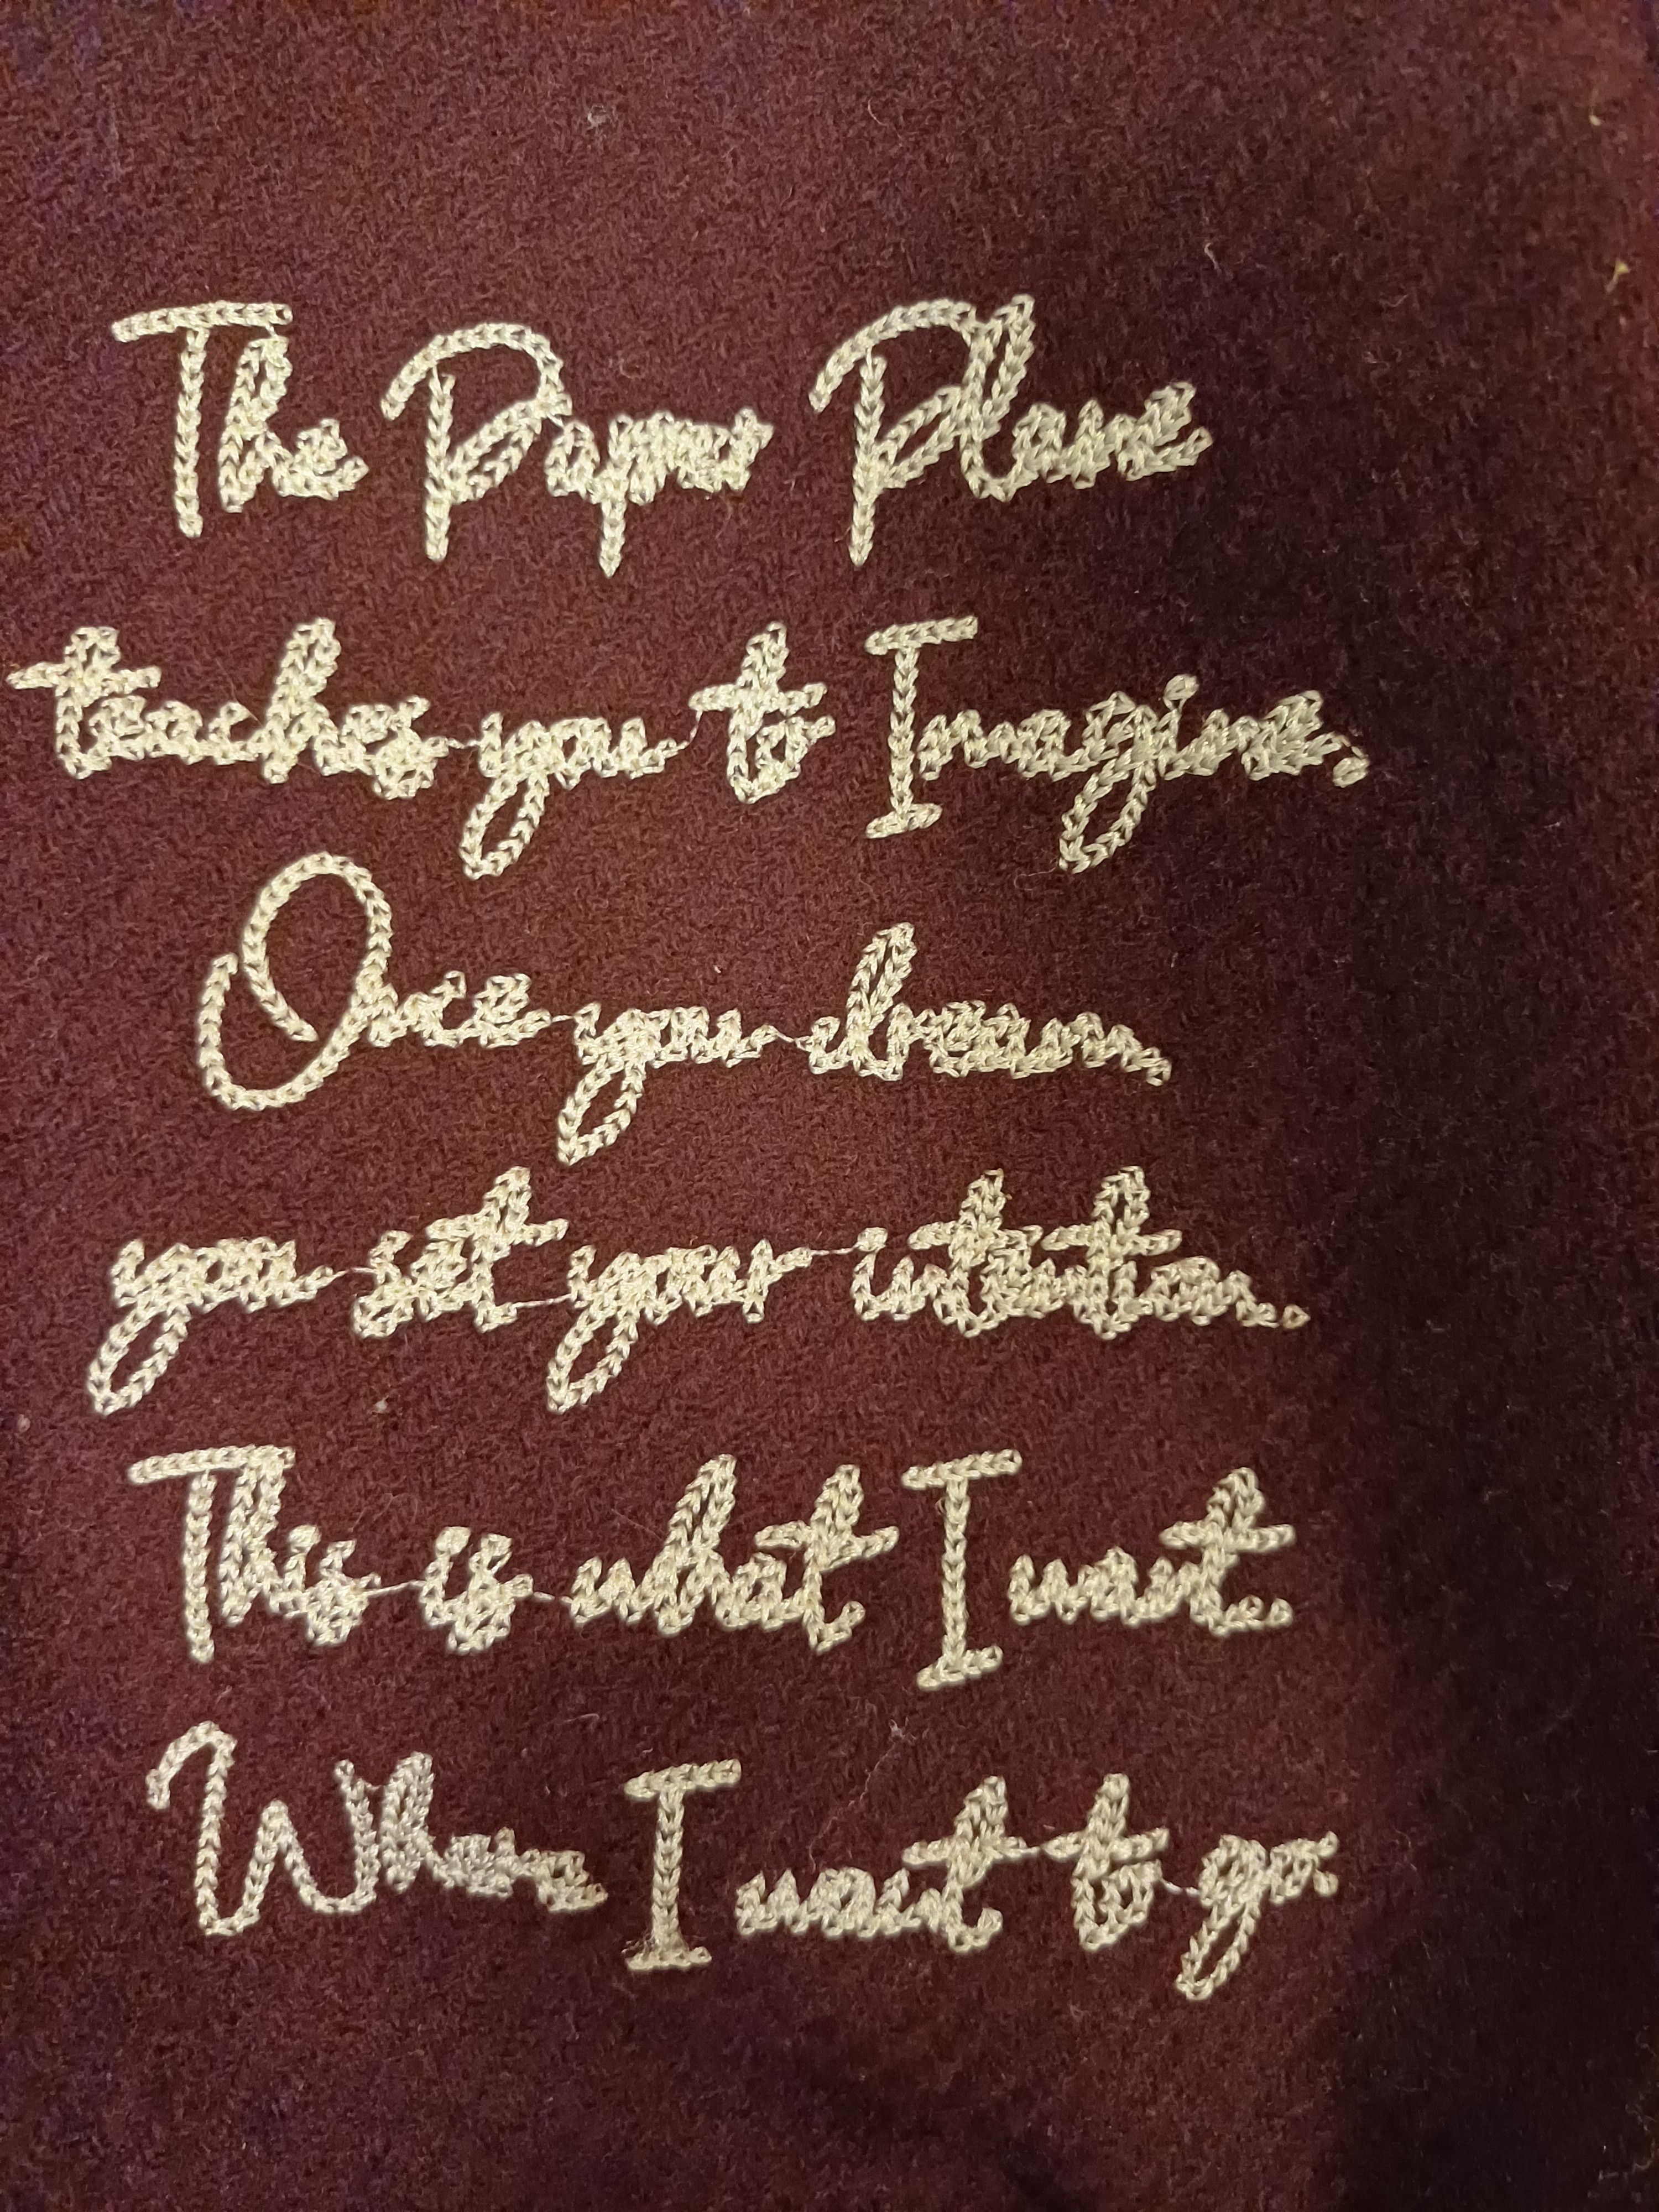 The Paper Plane
teaches you to Imagine,
Once you dream,
you set your intention.
This is what I want.
Where I want to go.